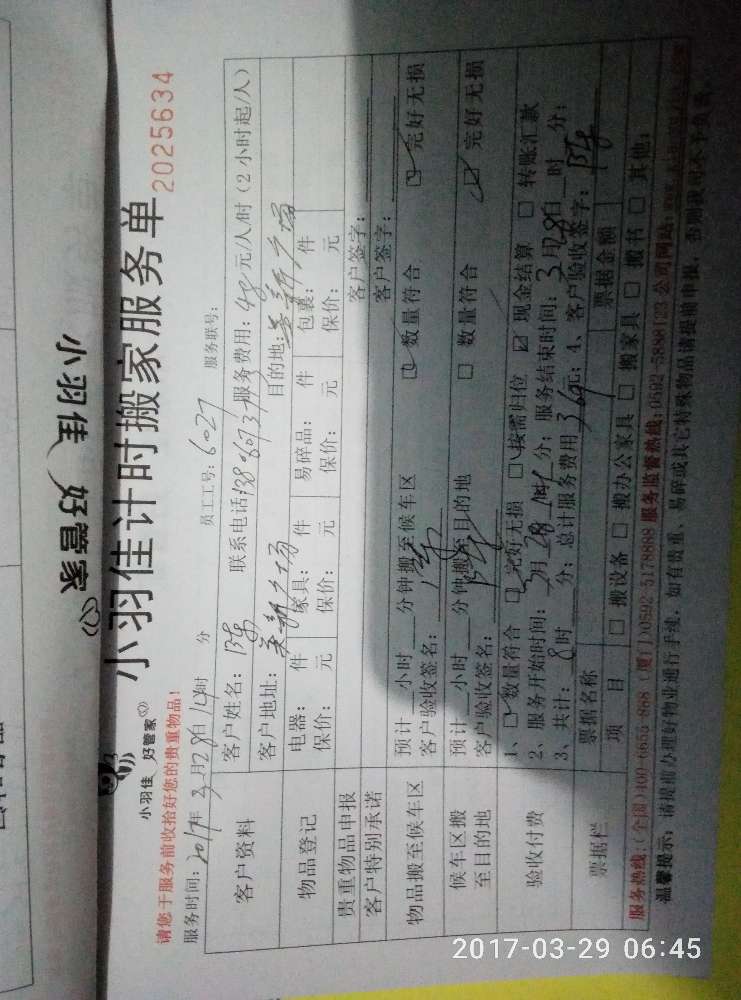 小羽佳 好管家
小羽佳 好管家
小羽佳计时搬家服务单
2025634
请您于服务前收拾好您的贵重物品!
服务时间: 2017年3月28日14时 分 员工工号: 6027 服务联号:
客户资料
客户姓名: 联系电话: 服务费用: 元/人/时(2小时起/人)
客户地址: 目的地:
物品登记
电器: 件 家具: 件 易碎品: 件 包裹: 件
保价: 元 保价: 元 保价: 元 保价: 元
贵重物品申报 客户签字:
客户特别承诺 客户签字:
物品搬至候车区
预计 小时 分钟搬至候车区 数量符合 完好无损
客户验收签名:
候车区搬至目的地
预计 小时 分钟搬至目的地 数量符合 完好无损
客户验收签名:
验收付费
1、 数量符合 完好无损 按需归位 现金结算 转账汇款
2、服务开始时间: 3月28日 分; 服务结束时间: 3月28日 时 分;
3、共计: 8时 分; 总计服务费用 元; 4、客户验收签字:
票据栏
票据名称 票据金额
项 目 搬设备 搬办公家具 搬家具 搬书 其他:
服务热线:(全国)400-6655-888 (厦门)0592 5178888 服务监督热线:0592-5888123 公司网站:
温馨提示: 请提前办理好物业进行手续, 如有贵重、易碎或其它特殊物品请提前申报, 否则我司不予负责
2017-03-29 06:45